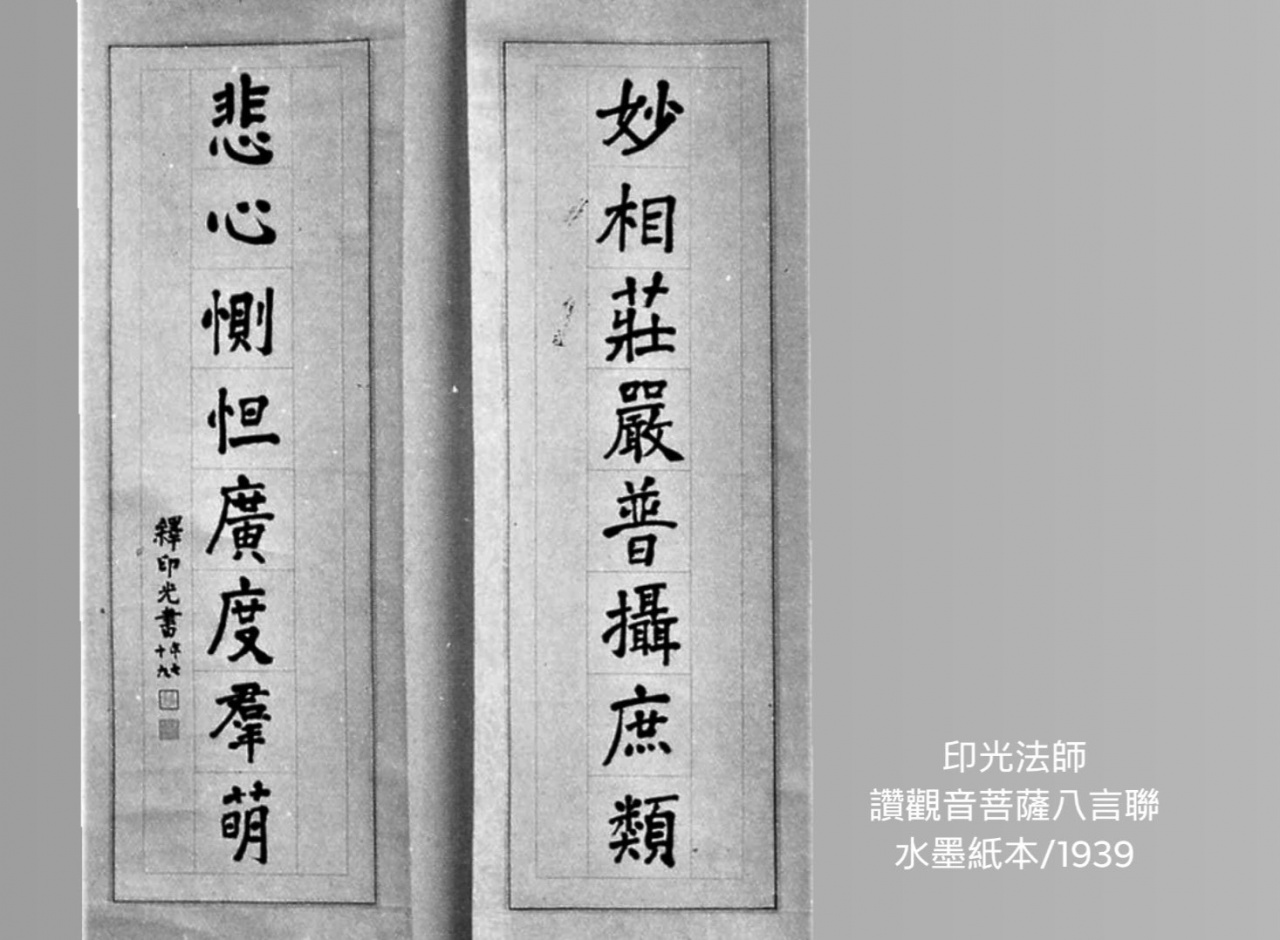 妙相莊嚴普攝庶類
悲心惻怛廣度羣萌
釋印光書
年七
十九
印光法師
讚觀音菩薩八言聯
水墨紙本/1939